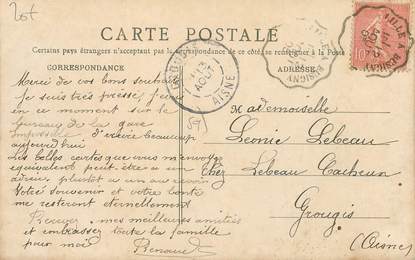 20f
CARTE POSTALE
Certains pays étrangers n'acceptant pas la correspondance de ce côté, se renseigner à la Poste
CORRESPONDANCE
ADRESSE
AOUT
AISNE
LILLE A BUSIGNY
10
Merci de vos bons souhaits
Je suis très pressé j'écris
en ce moment sur le
bureau de la gare
Impossible d'écrire beaucoup
aujourd'hui
Les belles cartes que vous m'envoyez
équivalent peut-être a un
adieu plutôt a un au revoir
Votre souvenir et votre bonté
me resteront éternellement
Recevez mes meilleures amitiés
et embrassez toute la famille
pour moi
Renaud
Mademoiselle
Léonie Lebeau
Chez Lebeau Cacheux
Grougis
(Aisne)